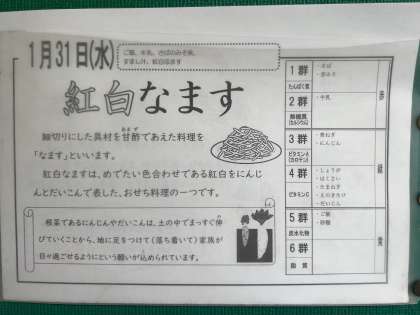 1月31日(水)
ご飯、牛乳、さばのみそ煮、
すまし汁、紅白なます
紅白なます
細切りにした具材を甘酢であえた料理を
「なます」といいます。
紅白なますは、めでたい色合わせである紅白をにんじ
んとだいこんで表した、おせち料理の一つです。
根菜であるにんじんやだいこんは、土の中でまっすぐ伸
びていくことから、地に足をつけて(落ち着いて)家族が
日々過ごせるようにという願いが込められています。
1群
たんぱく質
・さば
・赤みそ
2群
無機質
(カルシウム)
・牛乳
3群
ビタミンA
(カロテン)
・青ねぎ
・にんじん
4群
ビタミンC
・しょうが
・はくさい
・たまねぎ
・えのきたけ
・だいこん
5群
炭水化物
・ご飯
・砂糖
6群
脂質